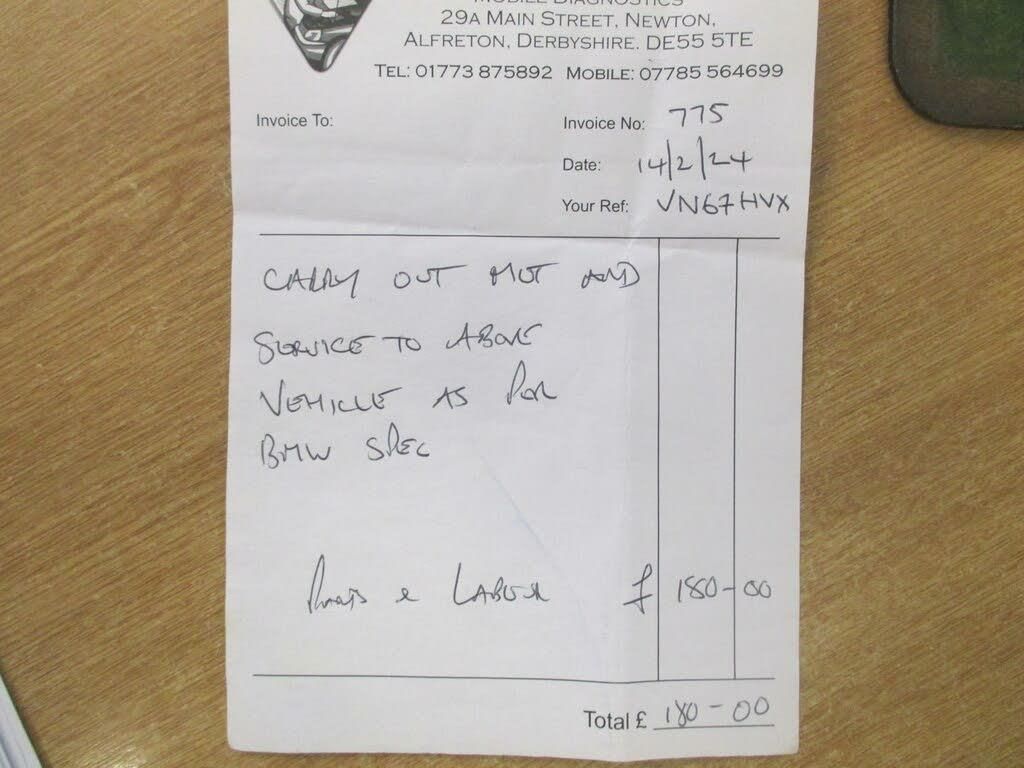 MOBILE DIAGNOSTICS
29A MAIN STREET, NEWTON,
ALFRETON, DERBYSHIRE. DE55 5TE
TEL: 01773 875892 MOBILE: 07785 564699
Invoice To:
Invoice No: 775
Date: 14/2/24
Your Ref: VN67HVX
CARRY OUT MOT AND
SERVICE TO ABOVE
VEHICLE AS PER
BMW SPEC
Parts & LABOUR £ 180-00
Total £ 180-00